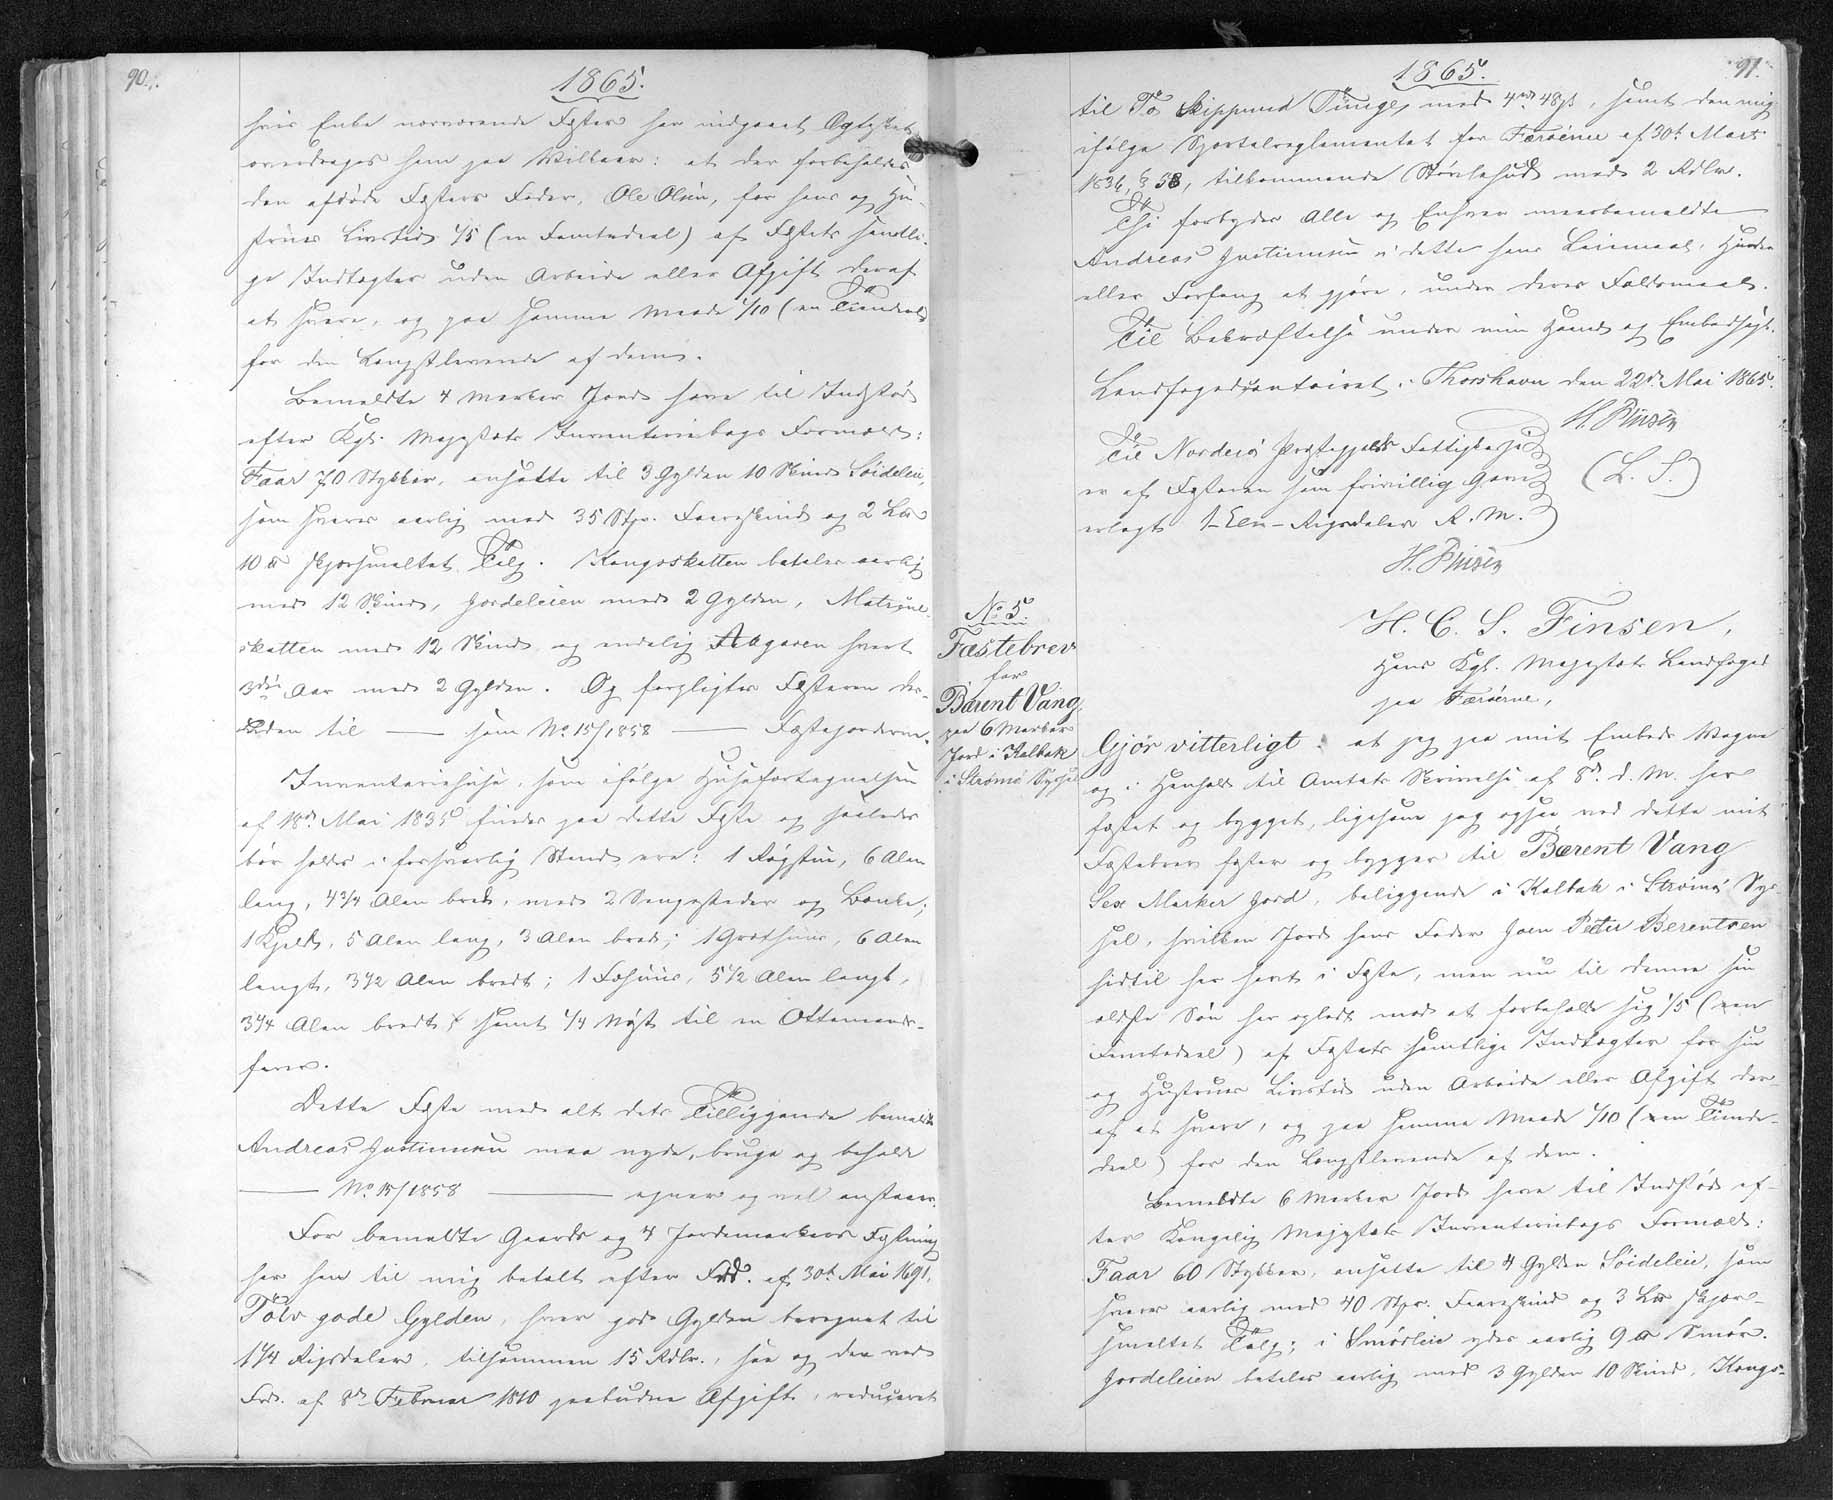 90.
1865.
hvis Enke nærværende Fæster har indgaaet Ægteskab
overdrages ham paa Vilkaar: at der forbeholdes
den afdøde Fæsters Fader, Ole Olsen, for hans og Hu-
strues Livstid 1/5 (en Femtedeel) af Fæstets samtli-
ge Indtægter uden Arbeide eller Afgift deraf
at svare, og paa samme Maade 1/10 (en Tiendedeel)
for den Længstlevende af dem.
Bemeldte 4 Marker Jord have til Indstød
efter Kgl. Majestæts Inventariebogs Formeld:
Faar 70 Stykker, ansatte til 3 Gylden 10 Skind Søideleie,
som svares aarlig med 35 Stpr. Faareskind og 2 L℔
10 ℔ skjærsmeltet Talg. Kongsskatten betales aarlig
med 12 Skind, Jordeleien med 2 Gylden, Matrikul-
skatten med 12 Skind og endelig Tilgaven hvert
3die Aar med 2 Gylden. Og forpligtes Fæsteren des-
uden til — som No 15/1858 — Fæstejorderne.
Inventariehuse, som ifølge Husefortegnelsen
af 18de Mai 1835 findes paa dette Fæste og saaledes
bør holdes i forsvarlig Stand ere: 1 Røgstue, 6 Alen
lang, 4 3/4 Alen bred, med 2 Sengesteder og Bænke;
1 Kjeld, 5 Alen lang, 3 Alen bred; 1 Græshuus, 6 Alen
langt, 3 1/2 Alen bredt; 1 Fæhuus, 5 1/2 Alen langt,
3 1/4 Alen bredt; samt 1/4 Nøst til en Ottemands-
farer.
Dette Fæste med alt dets Tilliggende bemeldte
Andreas Justinussen maa nyde, bruge og beholde
— No 15/1858 — egner og vel anstaaer.
For bemeldte Gaards og 4 Jordemarkers Fæstning
har han til mig betalt efter Frd. af 30te Mai 1691,
Tolv gode Gylden, hver god Gylden beregnet til
1 1/4 Rigsdaler, tilsammen 15 Rdlr., saa og den ved
Frd. af 8de Februar 1810 paabudne Afgift, reduceret
1865.
91.
til To Skippund Tunge, med 4 rd 48 ß, samt den mig
ifølge Sportelreglementet for Færøerne af 30te Marts
1836, § 58, tilkommende Støvlehud med 2 Rdlr.
Thi forbydes Alle og Enhver meerbemeldte
Andreas Justinussen i dette hans Leiemaal, Hinder
eller Forfang at gjøre, under deres Faldsmaal.
Til Bekræftelse under min Haand og Embedssegl.
Landfogedcontoiret i Thorshavn den 22de Mai 1865.
H. Finsen
(L. S.)
Til Norderø Præstegjelds Fattigkasse
er af Fæsteren som frivillig Gave
erlagt 1 – Een – Rigsdaler R. M.
H. Finsen
No 5.
Fæstebrev
for
Bærent Vang
paa 6 Marker
Jord i Kalbak
i Strømø Syssel
H. C. S. Finsen,
Hans Kgl. Majestæts Landfoged
paa Færøerne,
Gjør vitterligt: at jeg paa mit Embeds Vegne
og i Henhold til Amtets Skrivelse af 8de d. M. har
fæstet og bygget, ligesom jeg ogsaa ved dette mit
Fæstebrev fæster og bygger til Bærent Vang
Sex Marker Jord, beliggende i Kalbak i Strømø Sys-
sel, hvilken Jord hans Fader Joen Peder Berentsen
hidtil har havt i Fæste, men nu til denne sin
ældste Søn har opladt mod at forbeholde sig 1/5 (een
Femtedeel) af Fæstets samtlige Indtægter for sin
og Hustrues Livstid uden Arbeide eller Afgift der-
af at svare, og paa samme Maade 1/10 (een Tiende-
deel) for den Længstlevende af dem.
Bemeldte 6 Marker Jord have til Indstød ef-
ter Kongelig Majestæts Inventariebogs Formeld:
Faar 60 Stykker, ansatte til 4 Gylden Søideleie, som
svares aarlig med 40 Stpr. Faareskind og 3 L℔ skjær-
smeltet Talg; i Smørleie ydes aarlig 9 ℔ Smør.
Jordeleien betales aarlig med 3 Gylden 10 Skind, Kongs-